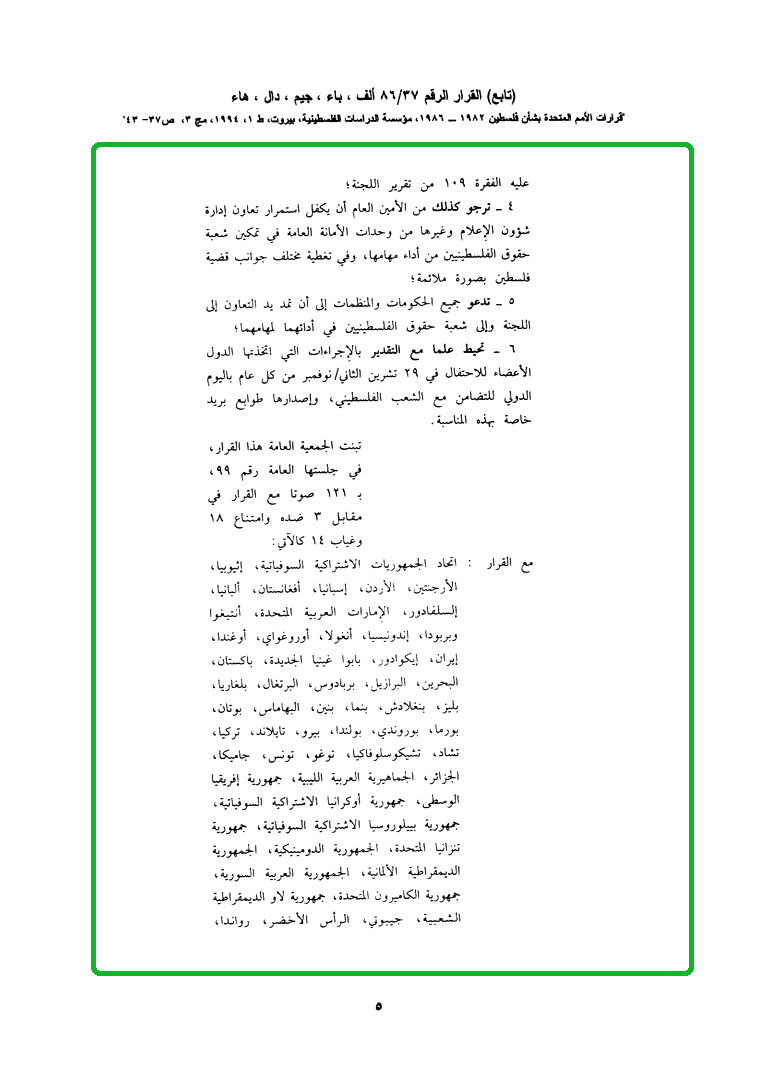 (تابع) القرار الرقم ٨٦/٣٧ ألف ، باء ، جيم ، دال ، هاء
"قرارات الأمم المتحدة بشأن فلسطين ١٩٨٢ ــ ١٩٨٦، مؤسسة الدراسات الفلسطينية، بيروت، ط ١، ١٩٩٤، مج ٣، ص٣٧- ٤٣"
عليه الفقرة ١٠٩ من تقرير اللجنة؛
٤ ـ ترجو كذلك من الأمين العام أن يكفل استمرار تعاون إدارة
شؤون الإعلام وغيرها من وحدات الأمانة العامة في تمكين شعبة
حقوق الفلسطينيين من أداء مهامها، وفي تغطية مختلف جوانب قضية
فلسطين بصورة ملائمة؛
٥ ـ تدعو جميع الحكومات والمنظمات إلى أن تمد يد التعاون إلى
اللجنة وإلى شعبة حقوق الفلسطينيين في أدائهما لمهامهما؛
٦ ـ تحيط علما مع التقدير بالإجراءات التي اتخذتها الدول
الأعضاء للاحتفال في ٢٩ تشرين الثاني/نوفمبر من كل عام باليوم
الدولي للتضامن مع الشعب الفلسطيني، وإصدارها طوابع بريد
خاصة بهذه المناسبة.
تبنت الجمعية العامة هذا القرار،
في جلستها العامة رقم ٩٩،
بـ ١٢١ صوتا مع القرار في
مقابل ٣ ضده وامتناع ١٨
وغياب ١٤ كالآتي:
مع القرار : اتحاد الجمهوريات الاشتراكية السوفياتية، إثيوبيا،
الأرجنتين، الأردن، إسبانيا، أفغانستان، ألبانيا،
إلسلفادور، الإمارات العربية المتحدة، أنتيغوا
وبربودا، إندونيسيا، أنغولا، أوروغواي، أوغندا،
إيران، إيكوادور، بابوا غينيا الجديدة، باكستان،
البحرين، البرازيل، بربادوس، البرتغال، بلغاريا،
بليز، بنغلادش، بنما، بنين، البهاماس، بوتان،
بورما، بوروندي، بولندا، بيرو، تايلاند، تركيا،
تشاد، تشيكوسلوفاكيا، توغو، تونس، جاميكا،
الجزائر، الجماهيرية العربية الليبية، جمهورية إفريقيا
الوسطى، جمهورية أوكرانيا الاشتراكية السوفياتية،
جمهورية بييلوروسيا الاشتراكية السوفياتية، جمهورية
تنزانيا المتحدة، الجمهورية الدومينيكية، الجمهورية
الديمقراطية الألمانية، الجمهورية العربية السورية،
جمهورية الكاميرون المتحدة، جمهورية لاو الديمقراطية
الشعبية، جيبوتي، الرأس الأخضر، رواندا،
٥